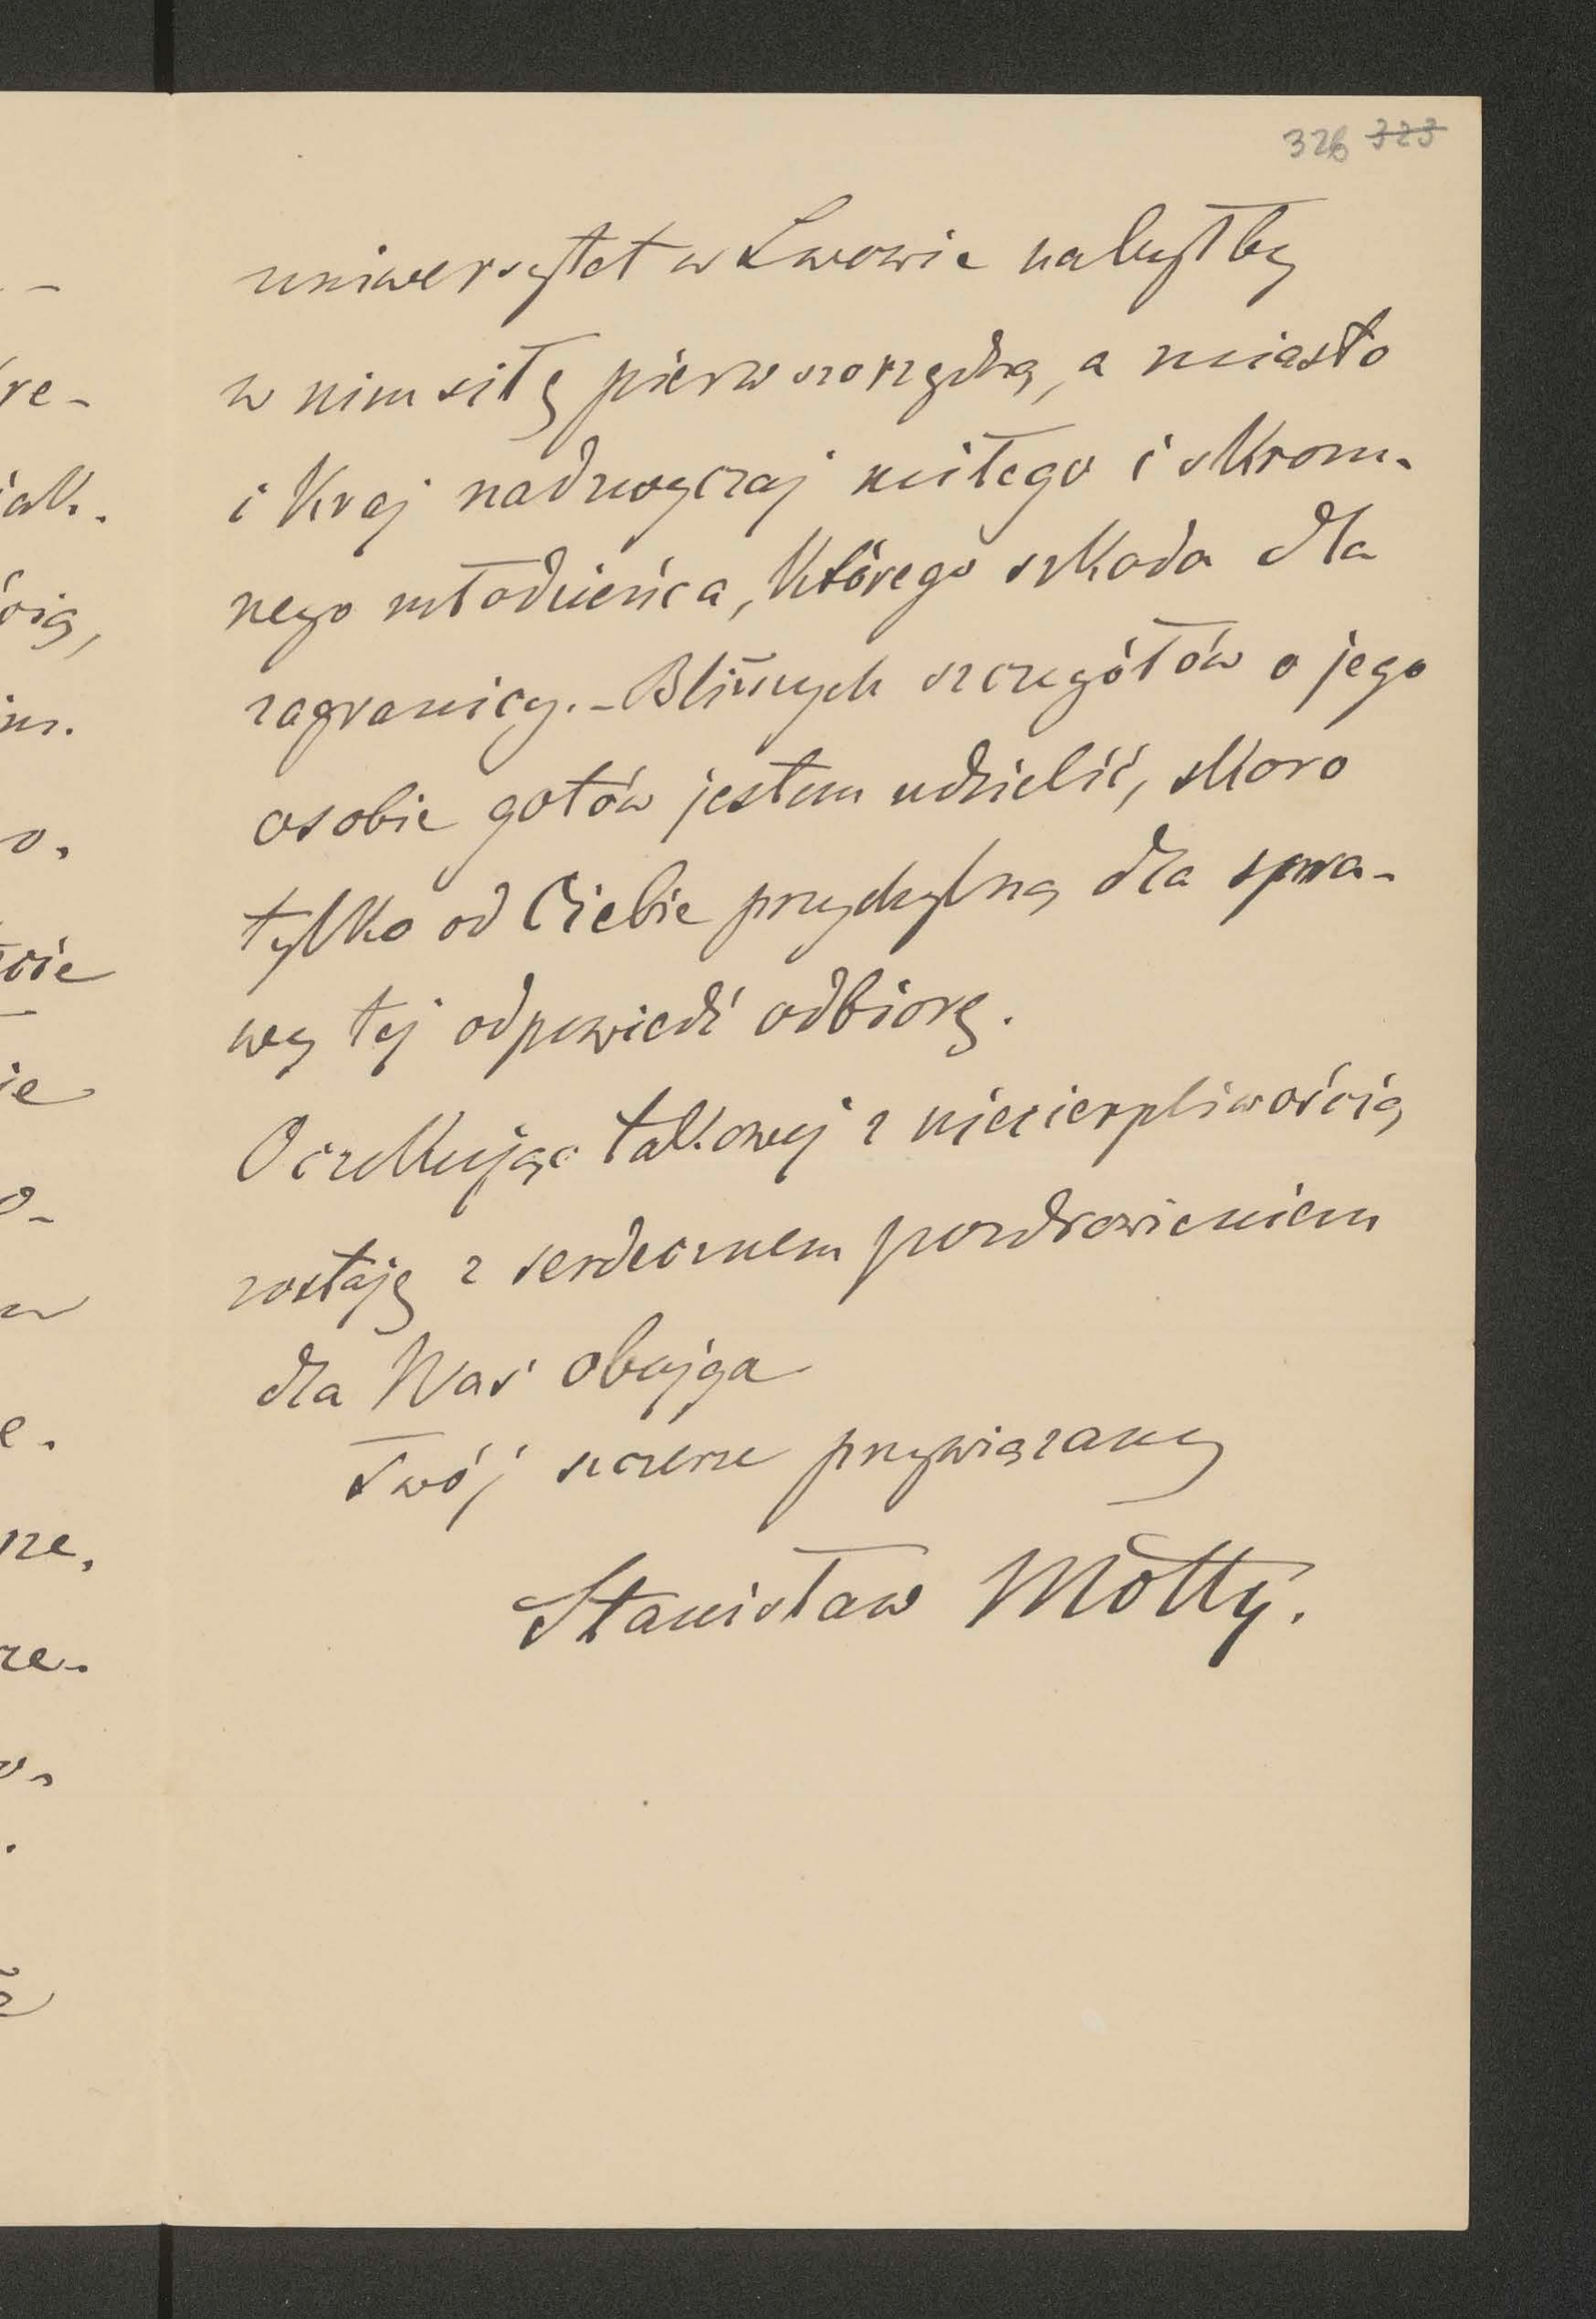 326 323
uniwersytet w Lwowie nabyłby
w nim siłę pierwszorzędną, a miasto
i Kraj nadzwyczaj miłego i skrom-
nego młodzieńca, którego szkoda dla
zagranicy. - Bliższych szczegółów o jego
osobie gotów jestem udzielić, skoro
tylko od Ciebie przychylną dla spra-
wy tej odpowiedź odbiorę.
Oczekując takowej z niecierpliwością
zostaję z serdecznem pozdrowieniem
dla Was obojga
Twój szczerze przywiązany
Stanisław Motty.